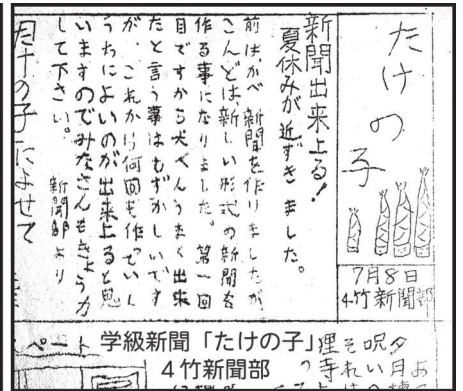 たけの子
7月8日
4竹新聞部
新聞出来上る!
夏休みが近ずきました。
前は、かべ新聞を作りましたが、
こんどは新しい形式の新聞を
作る事になりました。第一回
目ですから大へんうまく出来
たと言う事はむずかしいです
が、これから何回も作っていく
うちによいのが出来上ると思
いますのでみなさんもきょう力
して下さい。
新聞部より
たけの子によせて
学級新聞「たけの子」
4竹新聞部